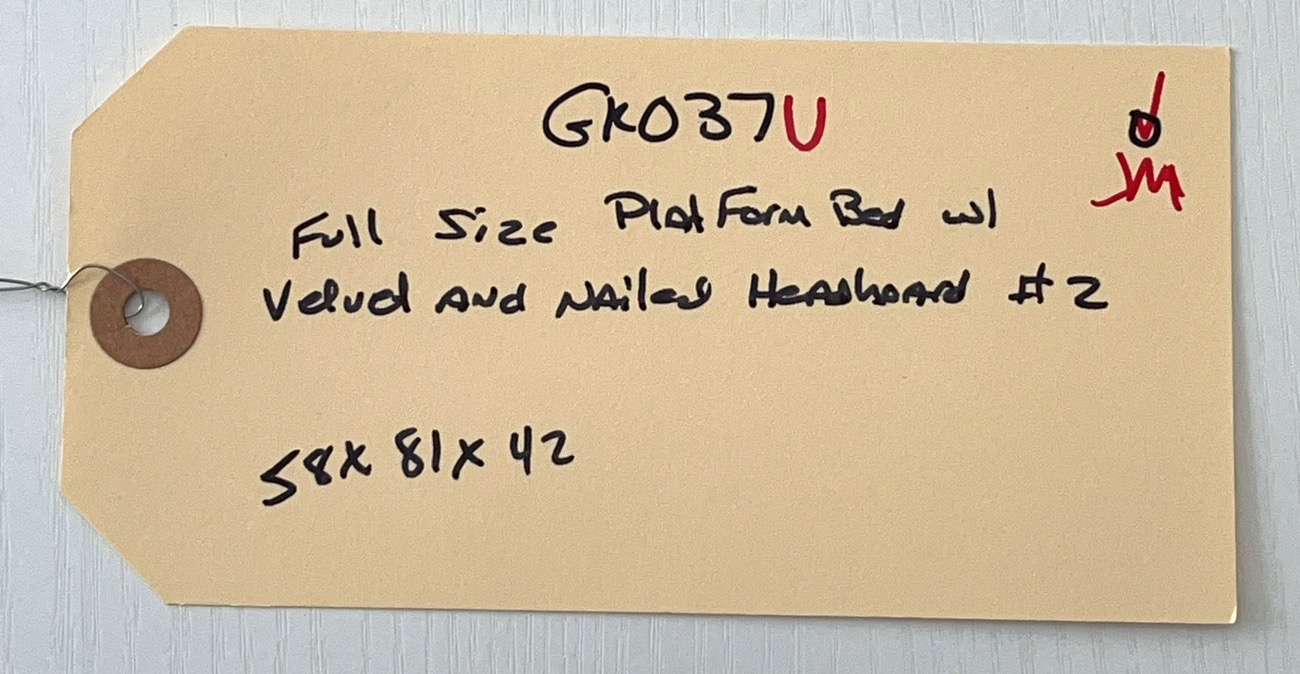 GK037U
Full Size Platform Bed w/
Velvet and Nailed Headboard #2
58x 81x 42